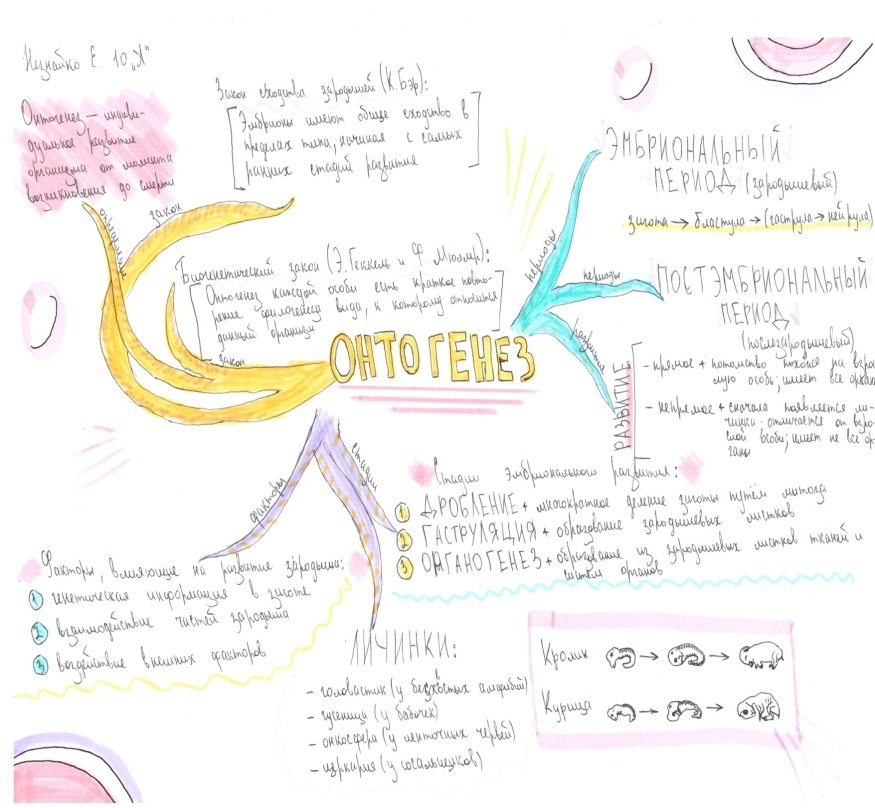 Незнайко Е. 10 „А"
Онтогенез — индиви-
дуальное развитие
организма от момента
возникновения до смерти
Закон сходства зародышей (К.Бэр):
Эмбрионы имеют общее сходство в
пределах типа, начиная с самых
ранних стадий развития
закон
определение
Биогенетический закон (Э.Геккель и Ф. Мюллер):
Онтогенез каждой особи есть краткое повто-
рение филогенеза вида, к которому относится
данный организм
закон
ОНТОГЕНЕЗ
периоды
ЭМБРИОНАЛЬНЫЙ
ПЕРИОД (зародышевый)
зигота → бластула → (гаструла → нейрула)
периоды
ПОСТЭМБРИОНАЛЬНЫЙ
ПЕРИОД
(послезародышевый)
развитие
РАЗВИТИЕ
- прямое + потомство похоже на взро
лую особь; имеет все орга
- непрямое + сначала появляется ли-
чинка - отличается от взро-
слой особи; имеет не все ор-
ганы
факторы
стадии
Стадии эмбрионального развития:
1 ДРОБЛЕНИЕ + многократное деление зиготы путём митоза
2 ГАСТРУЛЯЦИЯ + образование зародышевых листков
3 ОРГАНОГЕНЕЗ + образование из зародышевых листков тканей и
систем органов
Факторы, влияющие на развитие зародыша:
1 генетическая информация в зиготе
2 взаимодействие частей зародыша
3 воздействие внешних факторов
ЛИЧИНКИ:
- головастик (у бесхвостых амфибий)
- гусеница (у бабочек)
- онкосфера (у ленточных червей)
- церкария (у сосальщиков)
Кролик → →
Курица → →